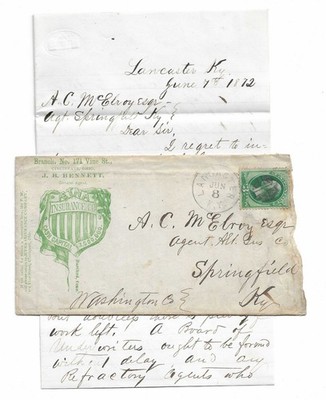 Lancaster Ky.
June 7th 1872
A. C. McElroy esqr
Agt Springfield Ky
Dear Sir,
I regret to in-
Branch, No. 171 Vine St.,
J. B. BENNETT,
INSURANCE
JUN
8
A. C. McElroy Esqr
Agent Ætna Ins C
Springfield
Washington Co
Ky
work left. A Board of
Underwriters ought to be formed
with delay and any
Refractory Agents who